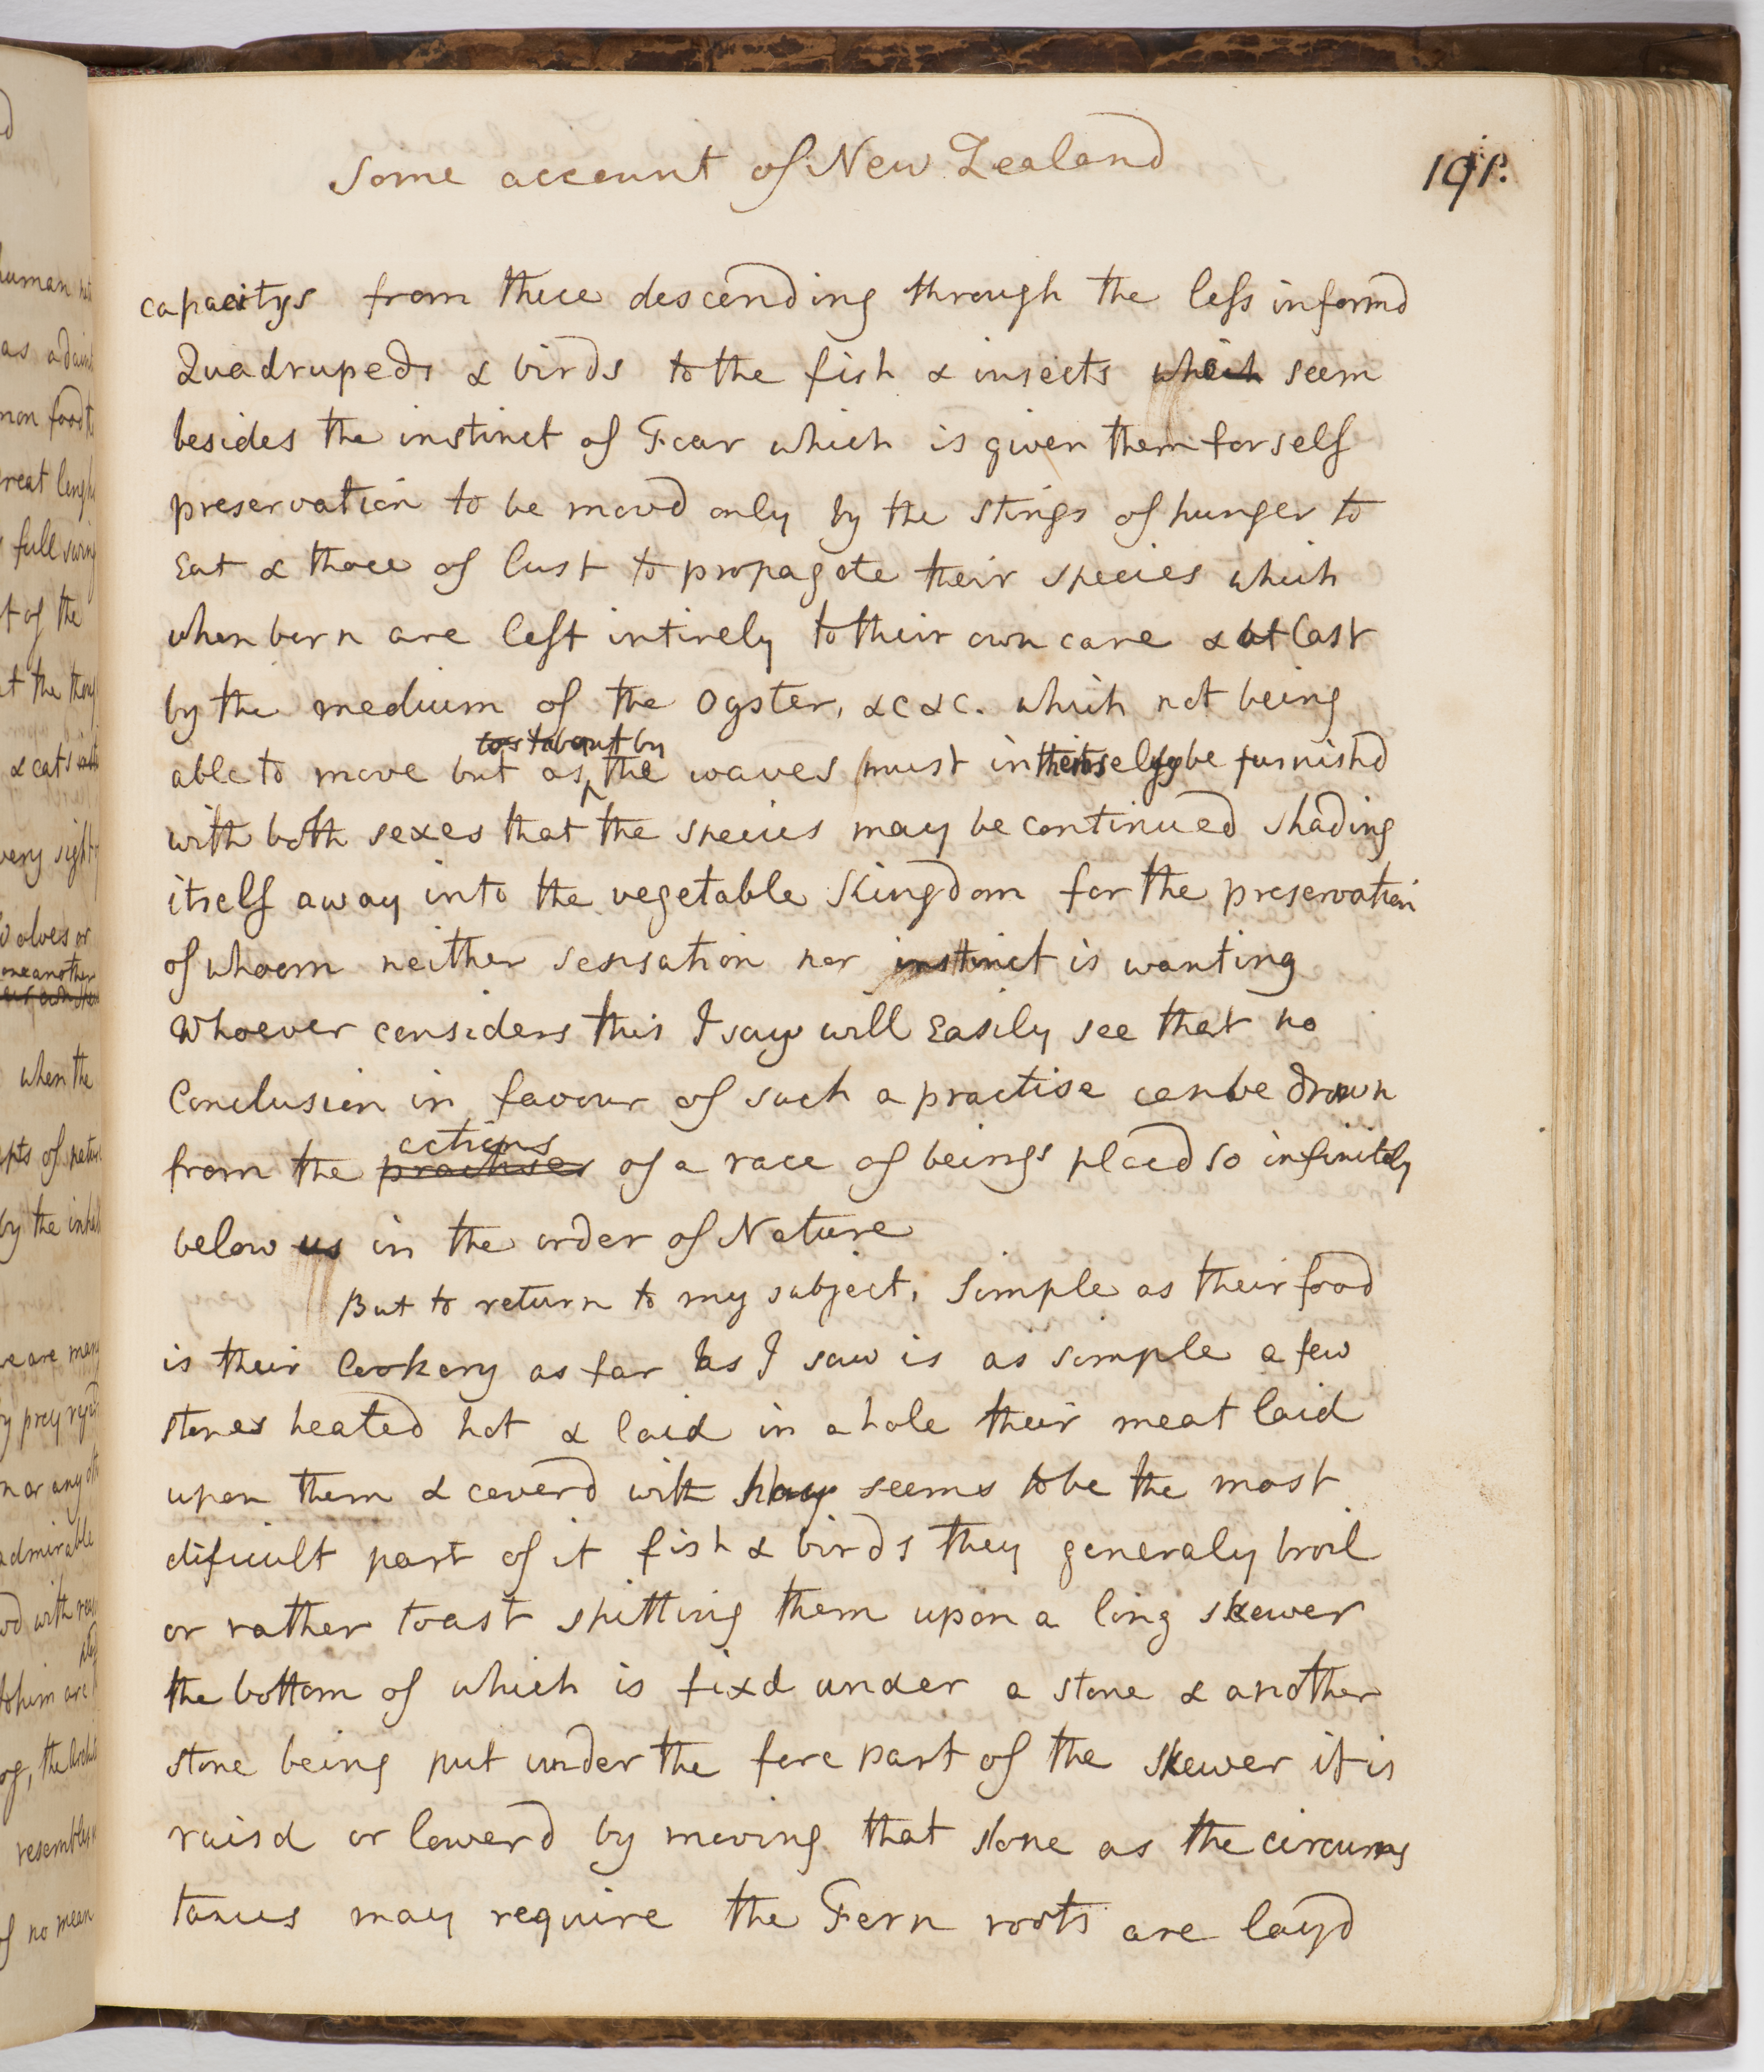 Some account of New Zealand
191.
capacitys from thece descending through the less informd
Quadrupeds & birds to the fish & insects which seem
besides the instinct of Fear which is given them for self
preservation to be movd only by the stings of hunger to
Eat & those of lust to propagate their species which
when born are left intirely to their own care & at last
by the medium of the Oyster, &c &c. which not being
tost about by
able to move but as the waves must in themselves be furnishd
with both sexes that the species may be continued shading
itself away into the vegetable Kingdom for the preservation
of whoom neither sensation nor instinct is wanting
Whoever considers this I say will Easily see that no
Conclusion in favour of such a practise can be drawn
actions
from the practises of a race of beings placd so infinitely
below us in the order of Nature
But to return to my subject. Simple as their food
is their Cookery as far as I saw is as simple a few
stones heated hot & laid in a hole their meat laid
upon them & coverd with Hay seems to be the most
dificult part of it fish & birds they generaly broil
or rather toast spitting them upon a long skewer
the bottom of which is fixd under a stone & another
stone being put under the fore part of the skewer it is
raisd or lowerd by moving that stone as the circums
tances may require the Fern roots are layd